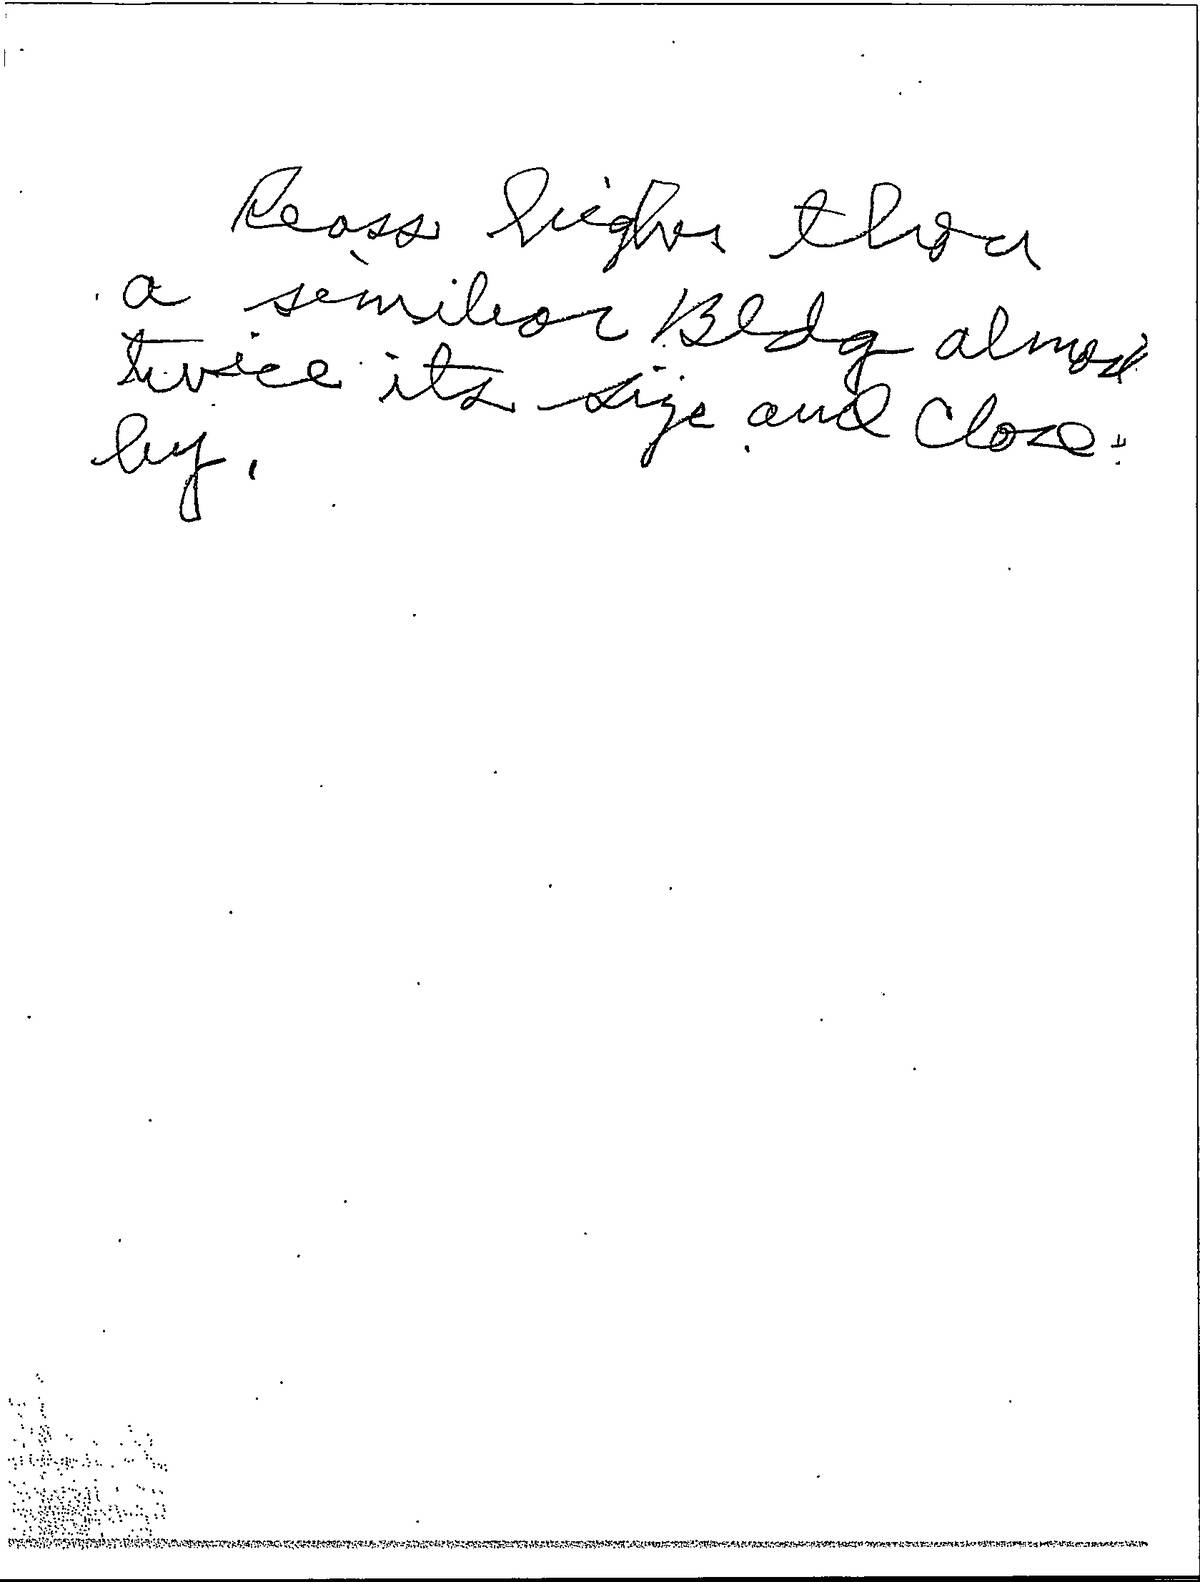 Reass higher than
a similar Bldg almost
twice its size and Close
by.